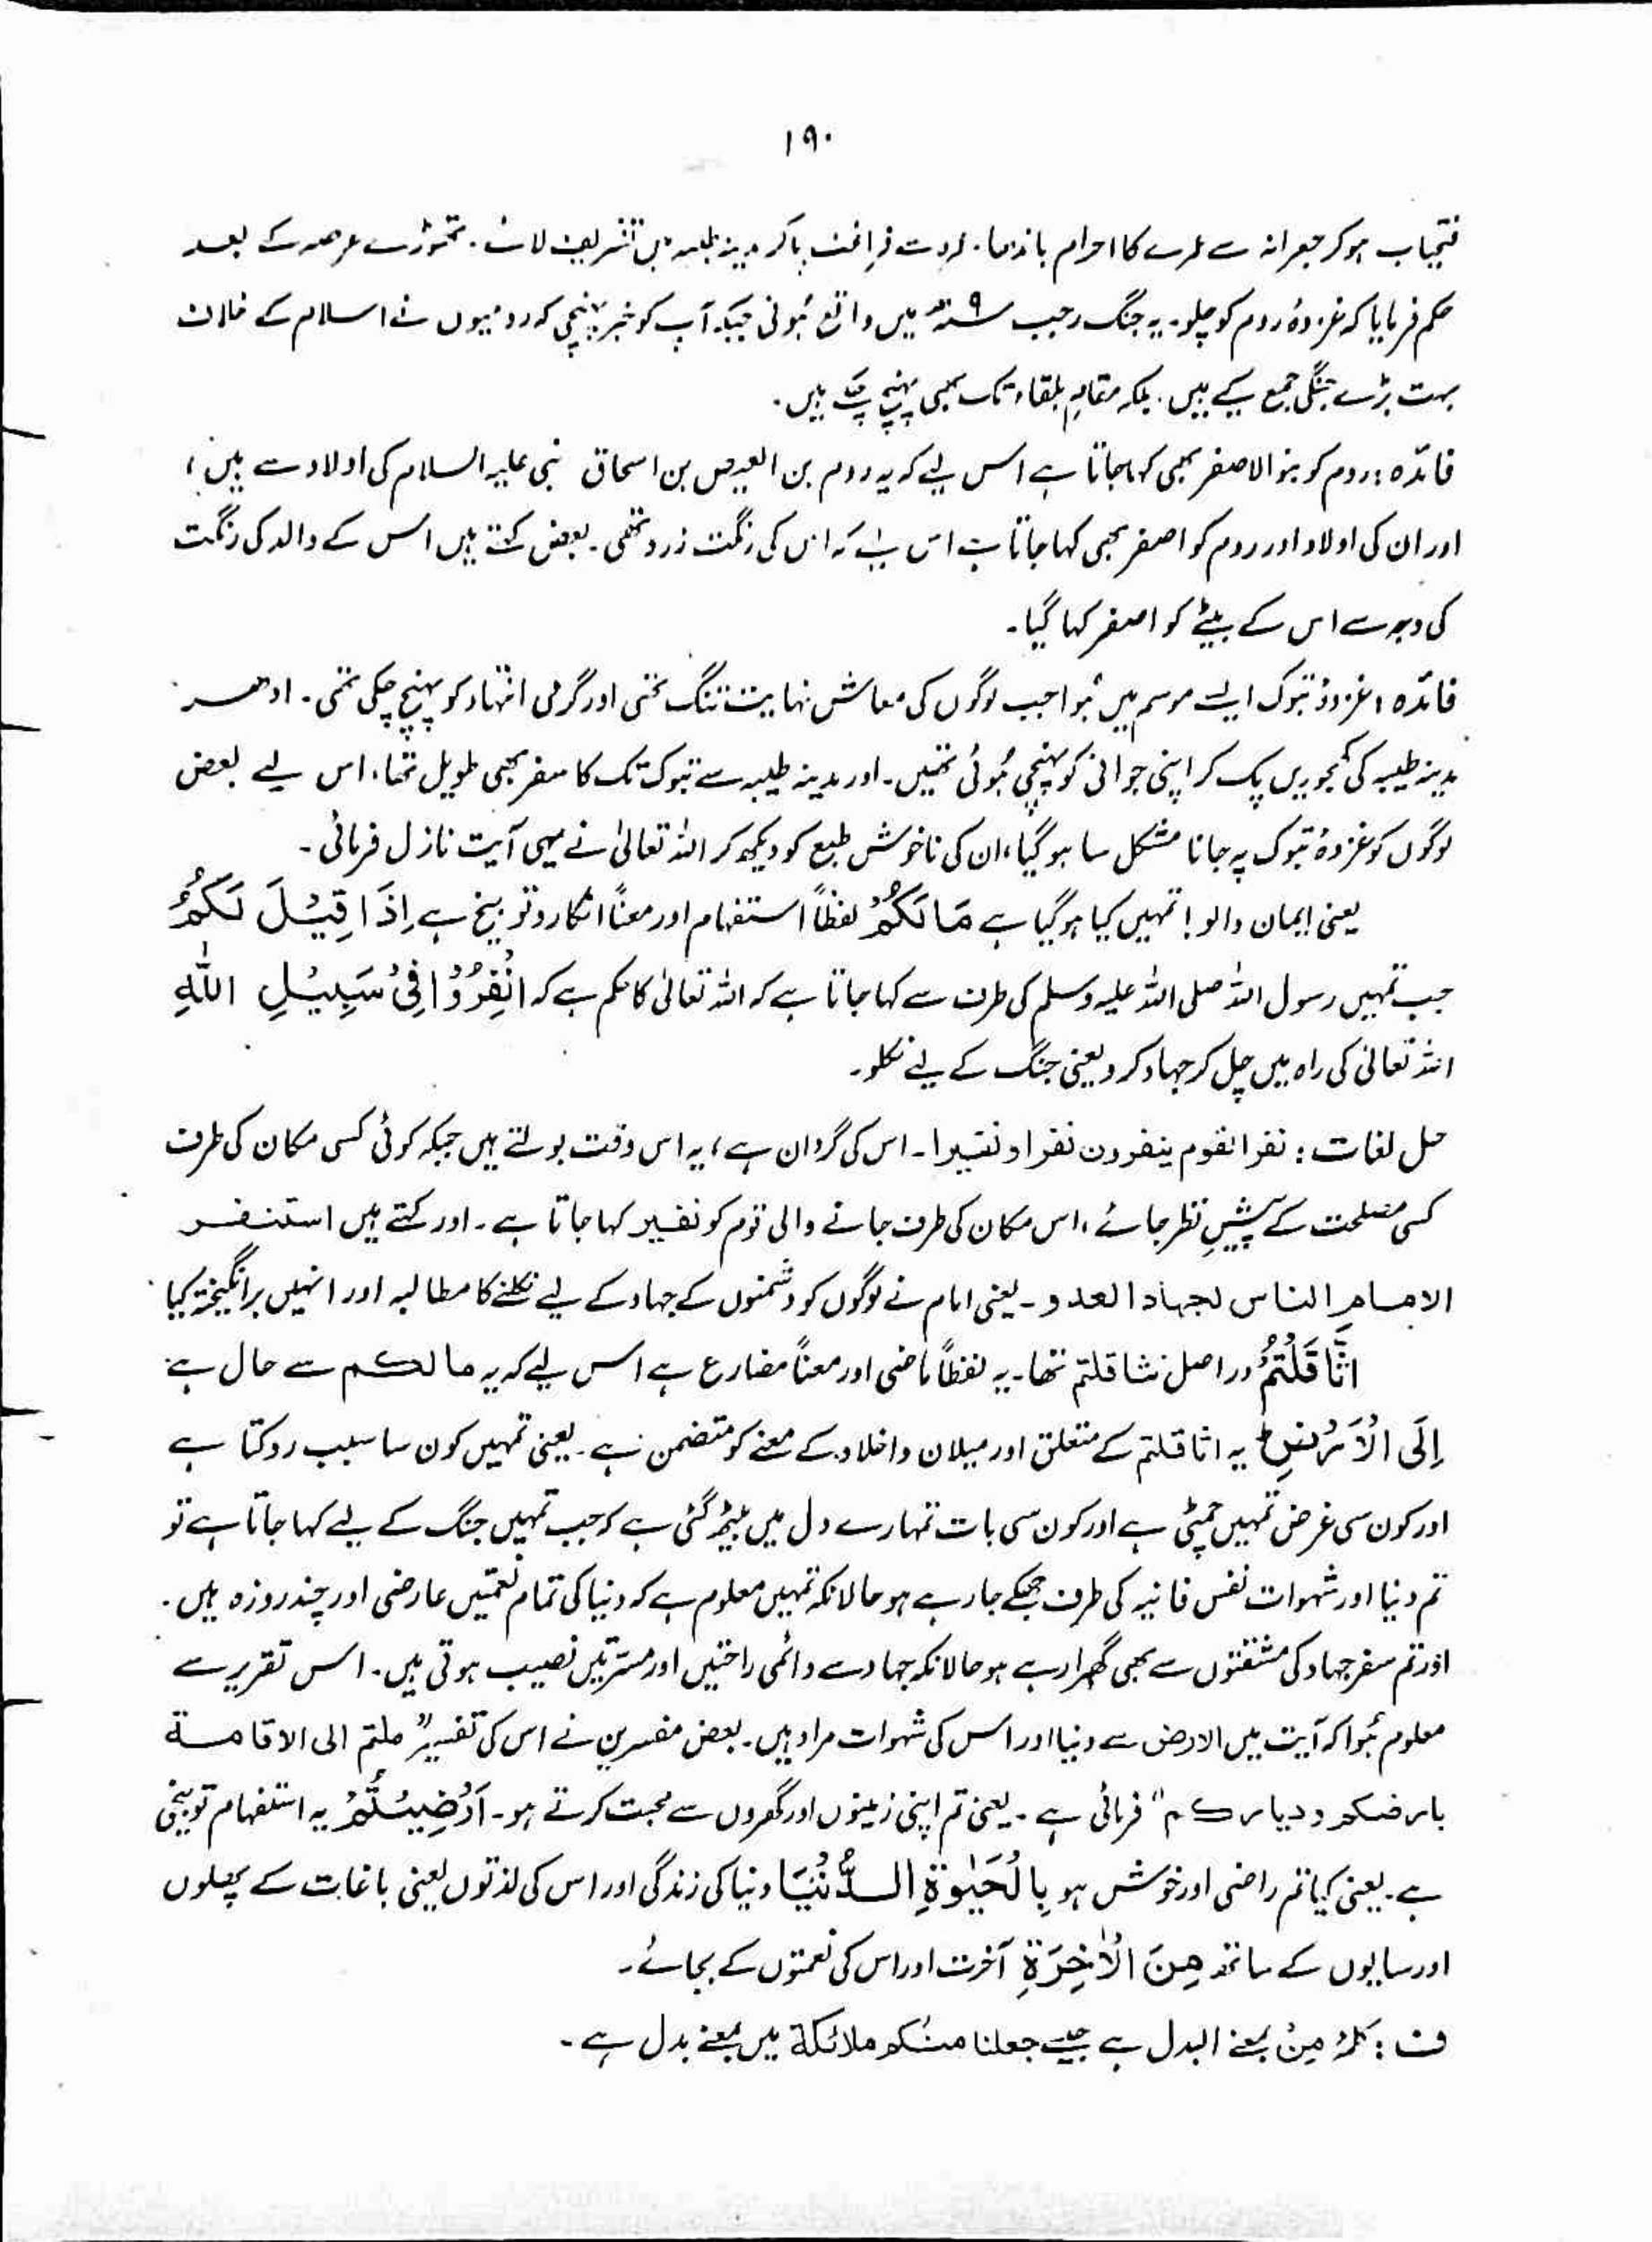 ۱۹۰
فتحیاب ہو کر جعرانہ سے عمرے کا احرام باندھا۔ عمرہ سے فراغت پا کر مدینہ طیبہ میں تشریف لائے۔ تھوڑے عرصہ کے بعد
حکم فرمایا کہ غزوۂ روم کو چلو۔ یہ جنگ رجب سنہ ۹ھ میں واقع ہُوئی جبکہ آپ کو خبر پہنچی کہ رومیوں نے اسلام کے خلاف
بہت بڑے جنگی جمع کیے ہیں۔ بلکہ مقامِ بلقاء تک بھی پہنچ چکے ہیں۔
فائدہ : روم کو بنو الاصفر بھی کہا جاتا ہے اس لیے کہ یہ روم بن العیص بن اسحاق نبی علیہ السلام کی اولاد سے ہیں،
اور ان کی اولاد اور روم کو اصفر بھی کہا جاتا ہے اس لیے کہ اس کی رنگت زرد تھی۔ بعض کہتے ہیں اس کے والد کی رنگت
کی وجہ سے اس کے بیٹے کو اصفر کہا گیا۔
فائدہ : غزوۂ تبوک ایسے موسم میں ہُوا جب لوگوں کی معاش نہایت تنگ تھی اور گرمی انتہاء کو پہنچ چکی تھی۔ ادھر
مدینہ طیبہ کی کھجوریں پک کر اپنی جوانی کو پہنچی ہُوئی تھیں۔ اور مدینہ طیبہ سے تبوک تک کا سفر بھی طویل تھا، اس لیے بعض
لوگوں کو غزوۂ تبوک پہ جانا مشکل سا ہو گیا، ان کی ناخوش طبع کو دیکھ کر اللہ تعالیٰ نے یہی آیت نازل فرمائی۔
یعنی ایمان والو! تمہیں کیا ہو گیا ہے مَا لَكُمْ لفظاً استفہام اور معناً انکار و توبیخ ہے اِذَا قِيْلَ لَكُمُ
جب تمہیں رسول اللہ صلی اللہ علیہ وسلم کی طرف سے کہا جاتا ہے کہ اللہ تعالیٰ کا حکم ہے کہ انْفِرُوْا فِىْ سَبِيْلِ اللّٰهِ
اللہ تعالیٰ کی راہ میں چل کر جہاد کرو یعنی جنگ کے لیے نکلو۔
حل لغات : نفر القوم ینفرون نفرا و نفیرا۔ اس کی گردان ہے، یہ اس وقت بولتے ہیں جبکہ کوئی کسی مکان کی طرف
کسی مصلحت کے پیشِ نظر جائے، اس مکان کی طرف جانے والی قوم کو نفیر کہا جاتا ہے۔ اور کہتے ہیں استنفر
الامام الناس لجہاد العدو۔ یعنی امام نے لوگوں کو دشمنوں کے جہاد کے لیے نکلنے کا مطالبہ اور انہیں برانگیختہ کیا
اثَّاقَلْتُمْ دراصل تثاقلتم تھا۔ یہ لفظاً ماضی اور معناً مضارع ہے اس لیے کہ یہ مالکم سے حال ہے
اِلَى الْاَرْضِ ط یہ اثاقلتم کے متعلق اور میلان و اخلاد کے معنے کو متضمن ہے۔ یعنی تمہیں کون سا سبب روکتا ہے
اور کون سی غرض تمہیں چمٹی ہے اور کون سی بات تمہارے دل میں بیٹھ گئی ہے کہ جب تمہیں جنگ کے لیے کہا جاتا ہے تو
تم دنیا اور شہوات نفس فانیہ کی طرف جھکے جا رہے ہو حالانکہ تمہیں معلوم ہے کہ دنیا کی تمام نعمتیں عارضی اور چند روزہ ہیں۔
اور تم سفر جہاد کی مشقتوں سے بھی گھبرا رہے ہو حالانکہ جہاد سے دائمی راحتیں اور مسرتیں نصیب ہوتی ہیں۔ اس تقریر سے
معلوم ہُوا کہ آیت میں الارض سے دنیا اور اس کی شہوات مراد ہیں۔ بعض مفسرین نے اس کی تفسیر "ملتم الی الاقامۃ
بارضکم و دیارکم" فرمائی ہے۔ یعنی تم اپنی زمینوں اور گھروں سے محبت کرتے ہو۔ اَرَضِيْتُمْ یہ استفہام توبیخی
ہے۔ یعنی کیا تم راضی اور خوش ہو بِالْحَيٰوةِ الدُّنْيَا دنیا کی زندگی اور اس کی لذتوں یعنی باغات کے پھلوں
اور سایوں کے ساتھ مِنَ الْاٰخِرَةِ آخرت اور اس کی نعمتوں کے بجائے۔
ف : کلمہ مِنْ بمعنے البدل ہے جیسے جعلنا منکم ملائکۃ میں بمعنے بدل ہے۔